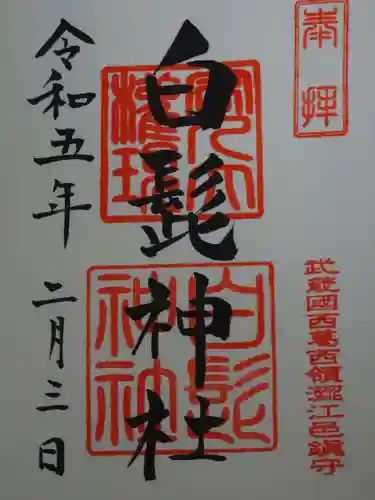 奉拝
武蔵國西葛西領澀江邑鎮守
白髭神社
白髭
神社
令和五年 二月三日